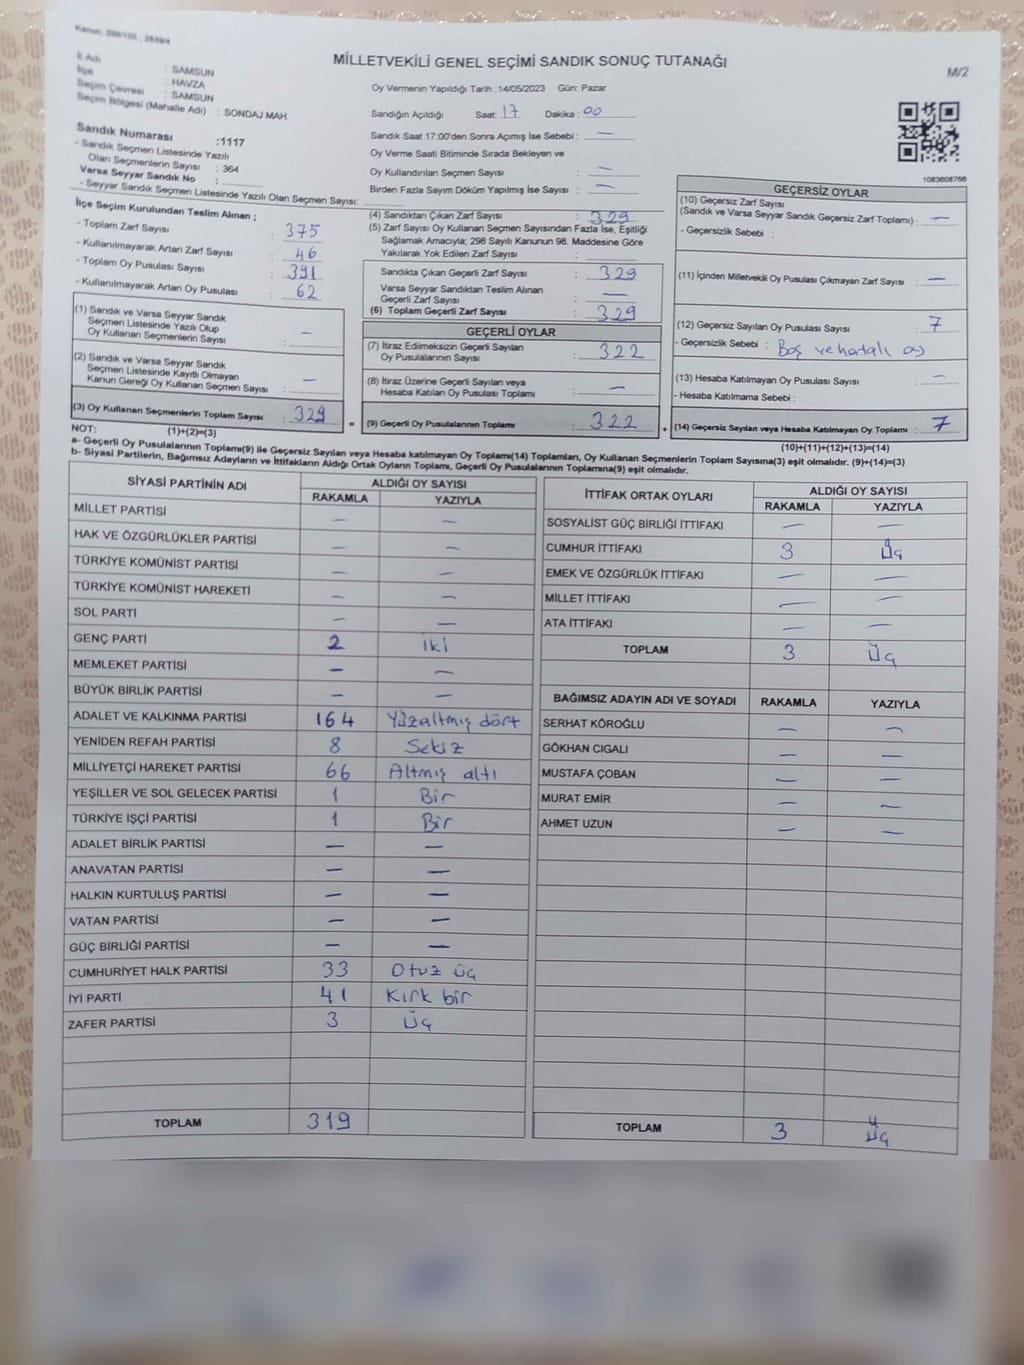 Kanun: 298/105 , 2839/4
MİLLETVEKİLİ GENEL SEÇİMİ SANDIK SONUÇ TUTANAĞI
M/2
İl Adı : SAMSUN
İlçe : HAVZA
Seçim Çevresi : SAMSUN
Seçim Bölgesi (Mahalle Adı) : SONDAJ MAH.
Sandık Numarası :1117
- Sandık Seçmen Listesinde Yazılı
Olan Seçmenlerin Sayısı : 364
Varsa Seyyar Sandık No :
- Seyyar Sandık Seçmen Listesinde Yazılı Olan Seçmen Sayısı:
Oy Vermenin Yapıldığı Tarih :14/05/2023 Gün: Pazar
Sandığın Açıldığı Saat: 17 Dakika : 00
Sandık Saat 17:00'den Sonra Açımış İse Sebebi : —
Oy Verme Saati Bitiminde Sırada Bekleyen ve
Oy Kullandırılan Seçmen Sayısı : —
Birden Fazla Sayım Döküm Yapılmış İse Sayısı : —
1083608766
İlçe Seçim Kurulundan Teslim Alınan ;
- Toplam Zarf Sayısı : 375
- Kullanılmayarak Artan Zarf Sayısı : 46
- Toplam Oy Pusulası Sayısı : 391
- Kullanılmayarak Artan Oy Pusulası : 62
(1) Sandık ve Varsa Seyyar Sandık
Seçmen Listesinde Yazılı Olup
Oy Kullanan Seçmenlerin Sayısı : —
(2) Sandık ve Varsa Seyyar Sandık
Seçmen Listesinde Kayıtlı Olmayan
Kanun Gereği Oy Kullanan Seçmen Sayısı : —
(3) Oy Kullanan Seçmenlerin Toplam Sayısı : 329
(4) Sandıktan Çıkan Zarf Sayısı : 329
(5) Zarf Sayısı Oy Kullanan Seçmen Sayısından Fazla İse, Eşitliği
Sağlamak Amacıyla; 298 Sayılı Kanunun 98. Maddesine Göre
Yakılarak Yok Edilen Zarf Sayısı :
Sandıkta Çıkan Geçerli Zarf Sayısı : 329
Varsa Seyyar Sandıktan Teslim Alınan
Geçerli Zarf Sayısı : —
(6) Toplam Geçerli Zarf Sayısı : 329
GEÇERLİ OYLAR
(7) İtiraz Edilmeksizin Geçerli Sayılan
Oy Pusulalarının Sayısı : 322
(8) İtiraz Üzerine Geçerli Sayılan veya
Hesaba Katılan Oy Pusulası Toplamı : —
= (9) Geçerli Oy Pusulalarının Toplamı : 322
GEÇERSİZ OYLAR
(10) Geçersiz Zarf Sayısı
(Sandık ve Varsa Seyyar Sandık Geçersiz Zarf Toplamı) : —
- Geçersizlik Sebebi :
(11) İçinden Milletvekili Oy Pusulası Çıkmayan Zarf Sayısı : —
(12) Geçersiz Sayılan Oy Pusulası Sayısı : 7
- Geçersizlik Sebebi : Boş ve hatalı oy
(13) Hesaba Katılmayan Oy Pusulası Sayısı : —
- Hesaba Katılmama Sebebi :
+ (14) Geçersiz Sayılan veya Hesaba Katılmayan Oy Toplamı : 7
NOT: (1)+(2)=(3)
(10)+(11)+(12)+(13)=(14)
a- Geçerli Oy Pusulalarının Toplamı(9) ile Geçersiz Sayılan veya Hesaba katılmayan Oy Toplamı(14) Toplamları, Oy Kullanan Seçmenlerin Toplam Sayısına(3) eşit olmalıdır. (9)+(14)=(3)
b- Siyasi Partilerin, Bağımsız Adayların ve İttifakların Aldığı Ortak Oyların Toplamı, Geçerli Oy Pusulalarının Toplamına(9) eşit olmalıdır.
SİYASİ PARTİNİN ADI ALDIĞI OY SAYISI
RAKAMLA YAZIYLA
MİLLET PARTİSİ — —
HAK VE ÖZGÜRLÜKLER PARTİSİ — —
TÜRKİYE KOMÜNİST PARTİSİ — —
TÜRKİYE KOMÜNİST HAREKETİ — —
SOL PARTİ — —
GENÇ PARTİ 2 iki
MEMLEKET PARTİSİ — —
BÜYÜK BİRLİK PARTİSİ — —
ADALET VE KALKINMA PARTİSİ 164 Yüzaltmış dört
YENİDEN REFAH PARTİSİ 8 Sekiz
MİLLİYETÇİ HAREKET PARTİSİ 66 Altmış altı
YEŞİLLER VE SOL GELECEK PARTİSİ 1 Bir
TÜRKİYE İŞÇİ PARTİSİ 1 Bir
ADALET BİRLİK PARTİSİ — —
ANAVATAN PARTİSİ — —
HALKIN KURTULUŞ PARTİSİ — —
VATAN PARTİSİ — —
GÜÇ BİRLİĞİ PARTİSİ — —
CUMHURİYET HALK PARTİSİ 33 Otuz üç
İYİ PARTİ 41 Kırk bir
ZAFER PARTİSİ 3 Üç
TOPLAM 319
İTTİFAK ORTAK OYLARI ALDIĞI OY SAYISI
RAKAMLA YAZIYLA
SOSYALİST GÜÇ BİRLİĞİ İTTİFAKI — —
CUMHUR İTTİFAKI 3 Üç
EMEK VE ÖZGÜRLÜK İTTİFAKI — —
MİLLET İTTİFAKI — —
ATA İTTİFAKI — —
TOPLAM 3 Üç
BAĞIMSIZ ADAYIN ADI VE SOYADI RAKAMLA YAZIYLA
SERHAT KÖROĞLU — —
GÖKHAN CIGALI — —
MUSTAFA ÇOBAN — —
MURAT EMİR — —
AHMET UZUN — —
TOPLAM 3 Üç